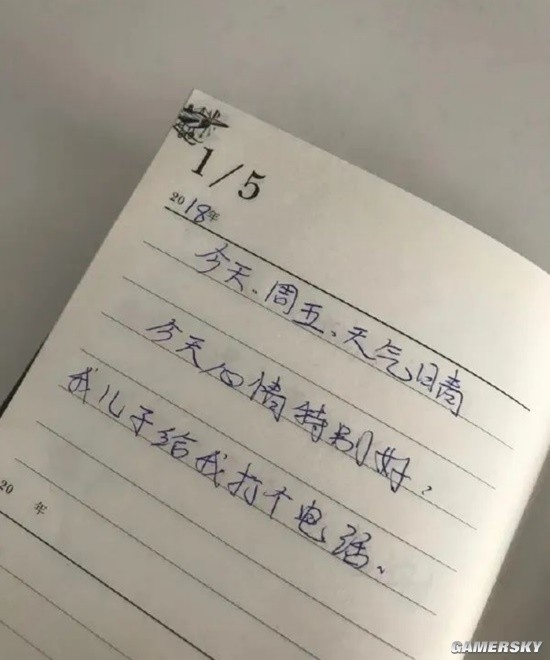 谜
1/5
2018年
今天、周五、天气晴
今天心情特别好,
我儿子给我打个电话、
20 年
GAMERSKY